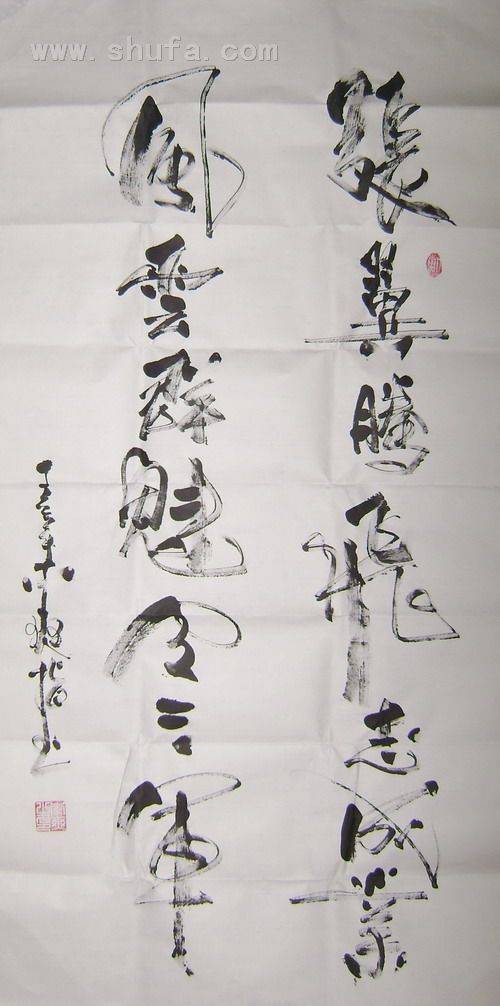 www.shufa.com
張翼騰飛志成業
風雲群魁令三軍